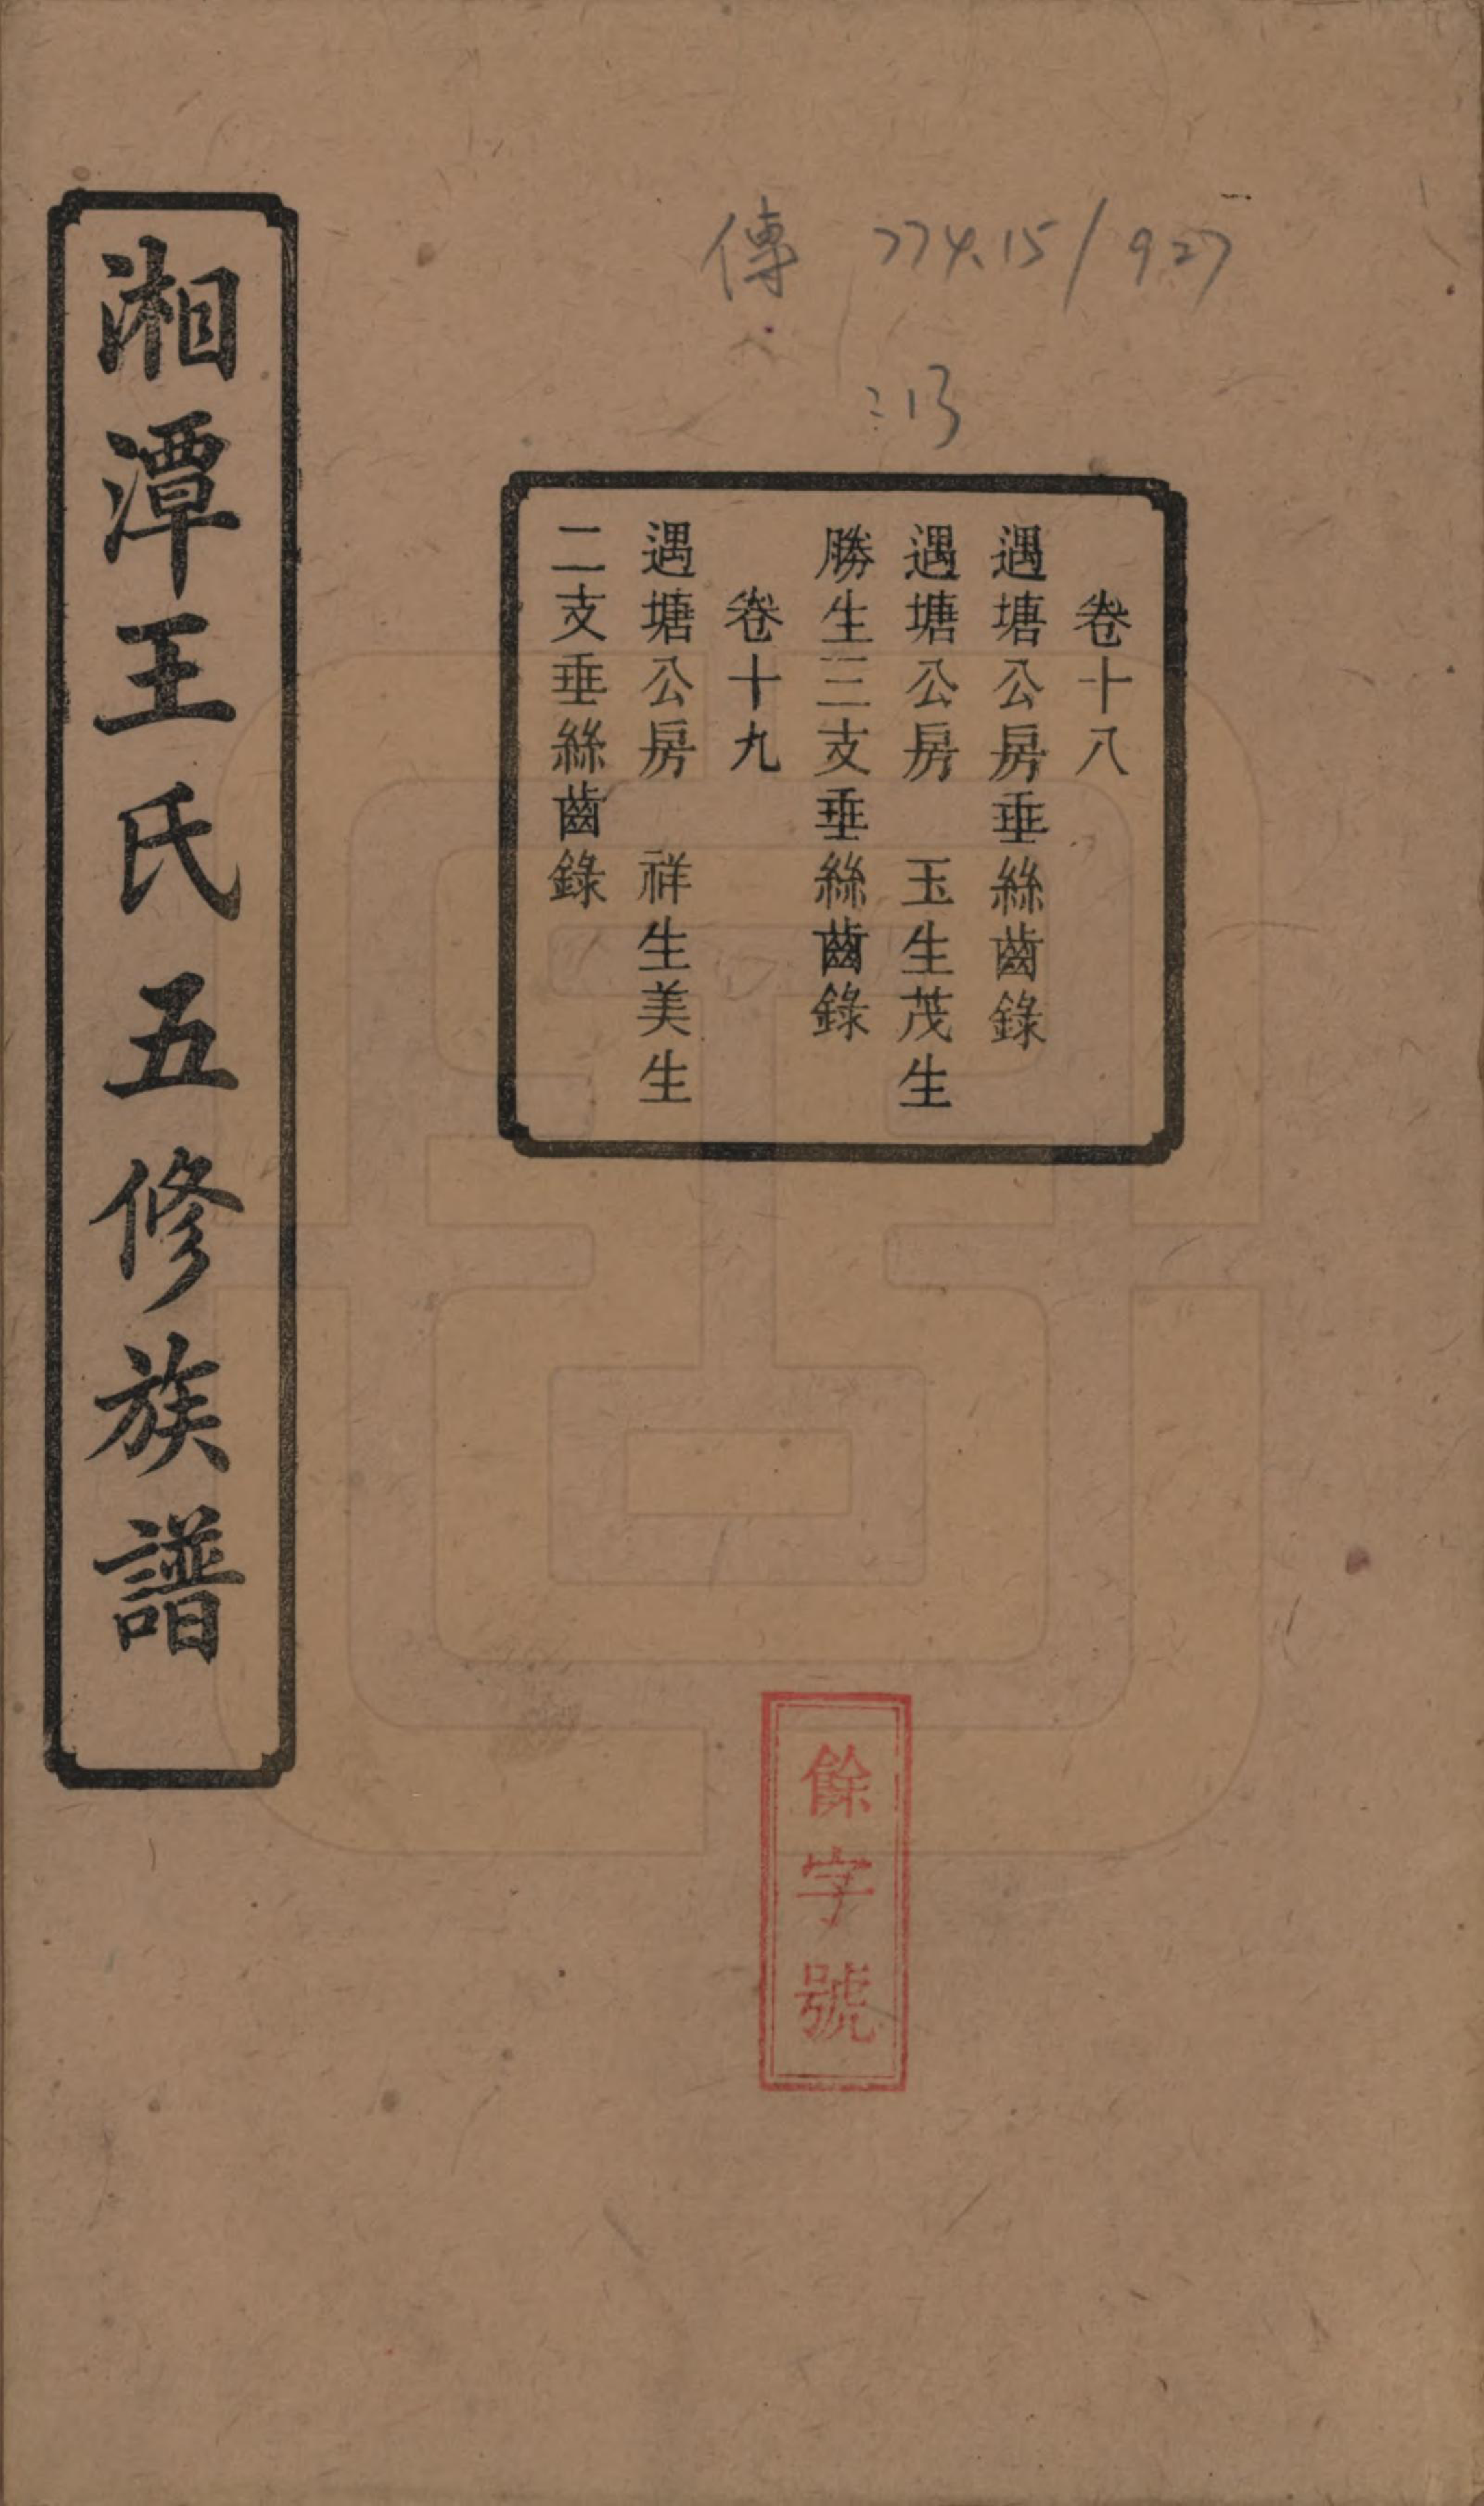 傳 774.15/927
:13
卷十八
遇塘公房垂絲齒錄
遇塘公房 玉生茂生
勝生三支垂絲齒錄
卷十九
遇塘公房 祥生美生
二支垂絲齒錄
湘潭王氏五修族譜
餘字號